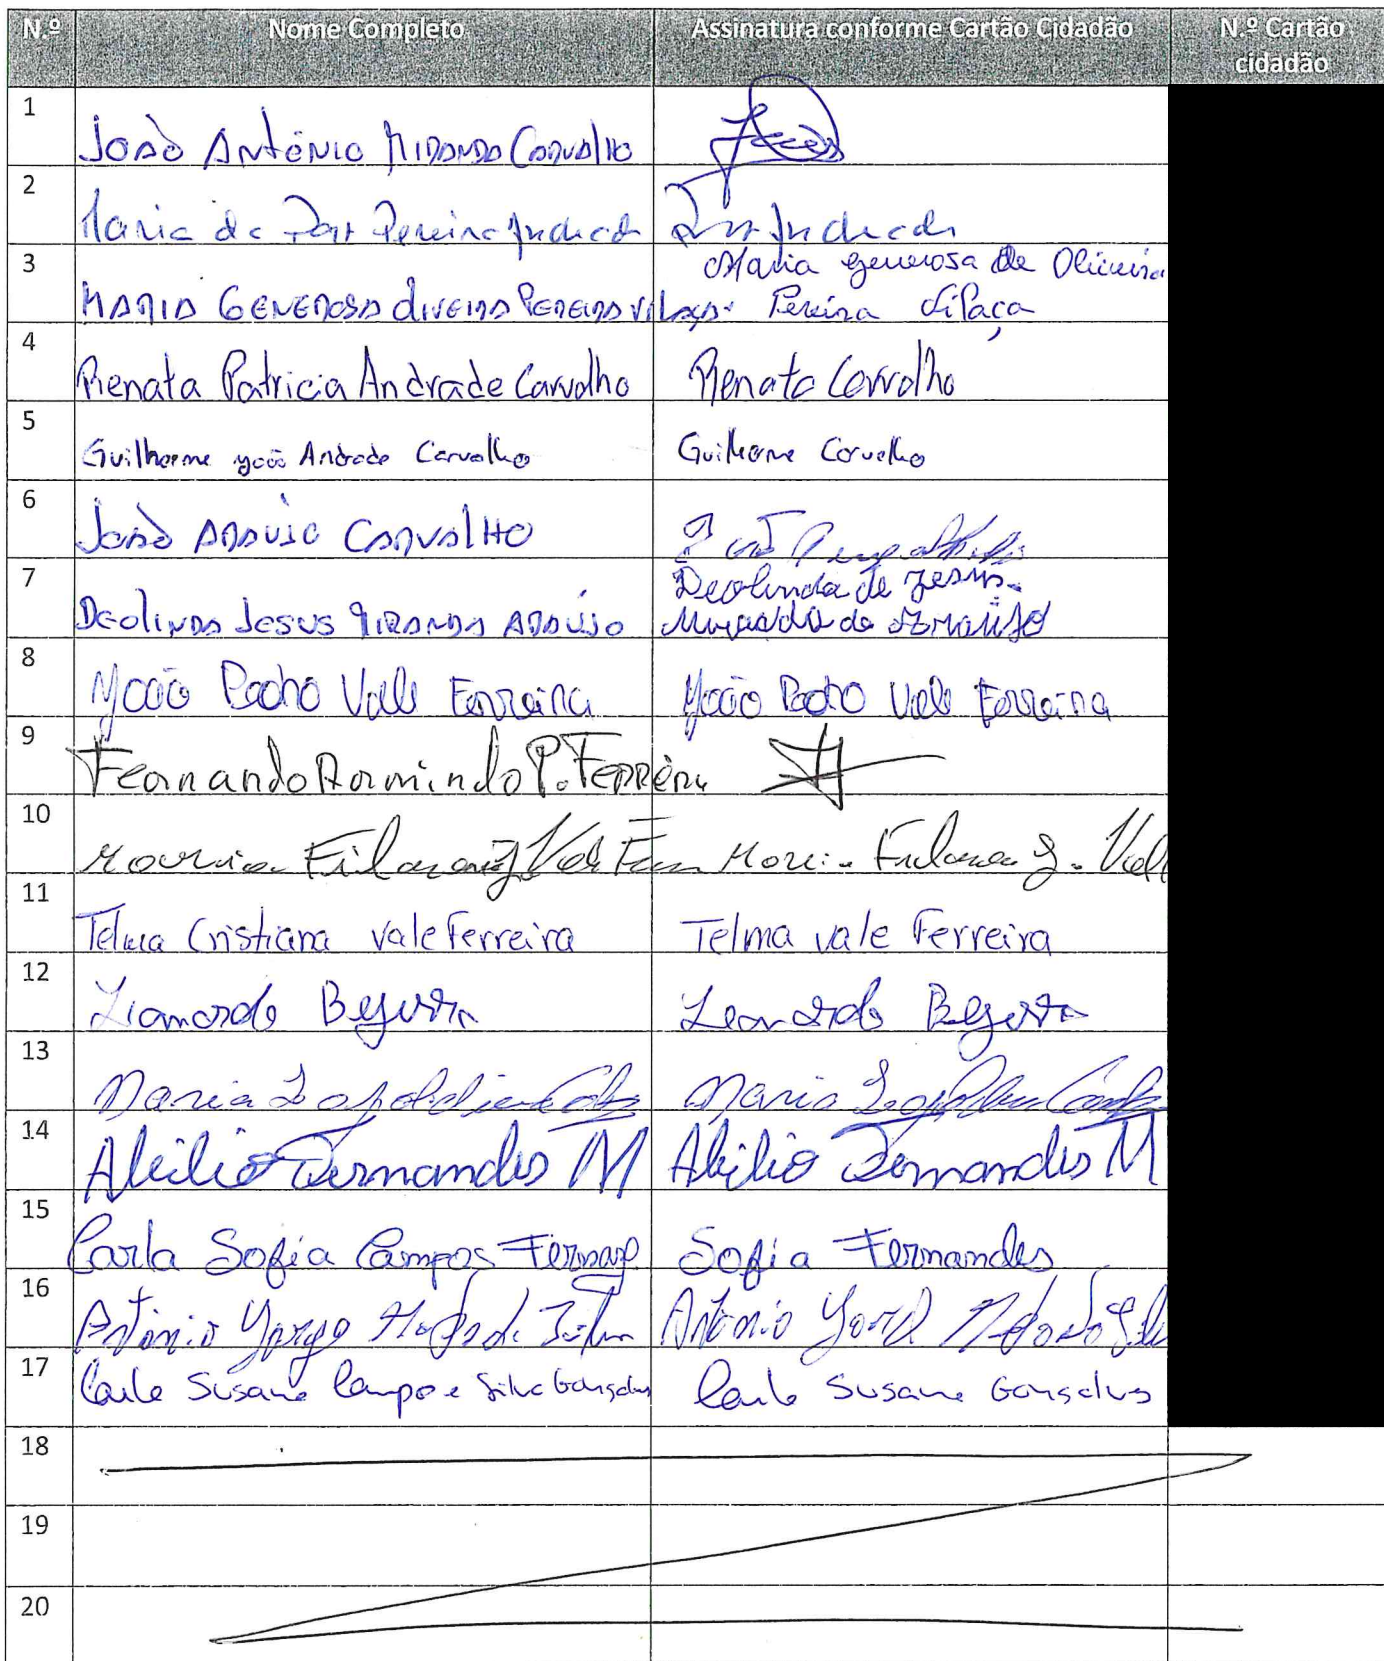 N.º Nome Completo Assinatura conforme Cartão Cidadão N.º Cartão cidadão
1 João António Miranda Carvalho
2 Maria da Paz Pereira Andrade Paz Andrade
3 Maria Generosa Oliveira Pereira Vilaça Maria Generosa de Oliveira
Pereira Vilaça
4 Renata Patricia Andrade Carvalho Renata Carvalho
5 Guilherme João Andrade Carvalho Guilherme Carvalho
6 João Araújo Carvalho
7 Deolinda Jesus Miranda Araújo Deolinda de Jesus
Miranda de Araújo
8 João Pedro Vale Ferreira João Pedro Vale Ferreira
9 Fernando Armindo P. Ferreira
10 Filomena Vale Filomena Vale
11 Telma Cristiana Vale Ferreira Telma Vale Ferreira
12 Leonardo Leonardo
13 Maria Leopoldina Maria
14 Abilio Fernandes M Abilio Fernandes M
15 Carla Sofia Campos Fernand Sofia Fernandes
16 António Jorge António Jorge
17 Carla Susana Campos e Silva Gonçalves Carla Susana Gonçalves
18
19
20